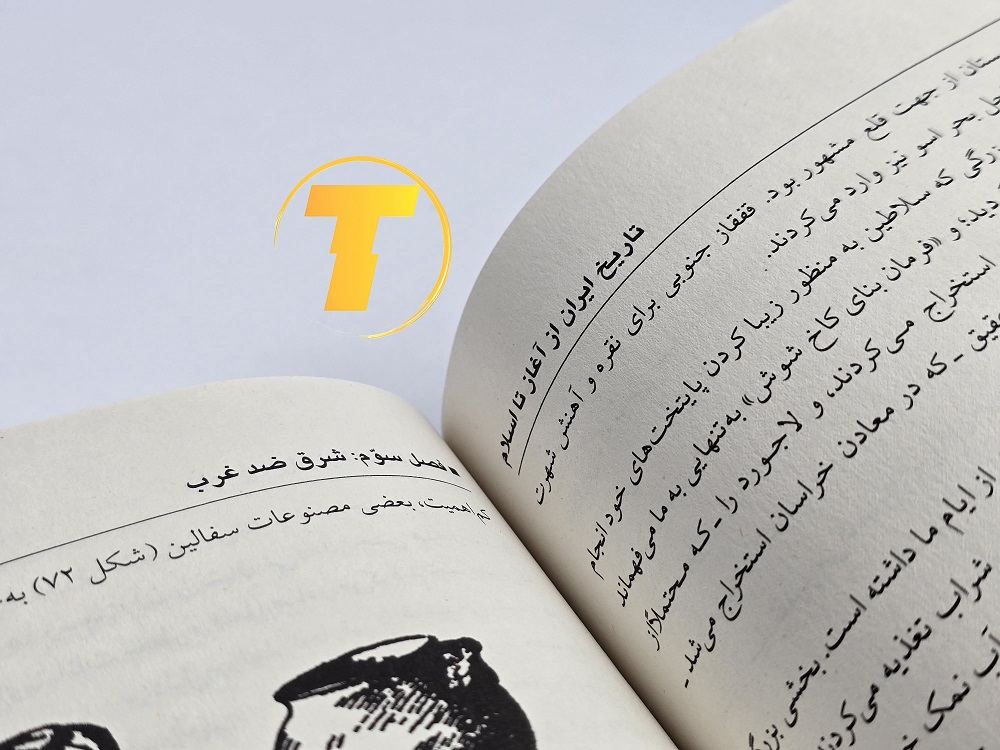 تاریخ ایران از آغاز تا اسلام
از جهت قلع مشهور بود. قفقاز جنوبی برای نقره و آهنش شهرت
بحر اسو نیز وارد می‌کردند.
که سلاطین به منظور زیبا کردن پایتخت‌های خود انجام
و «فرمان بنای کاخ شوش» به‌تنهایی به ما می‌فهماند
استخراج می‌کردند، و لاجورد را - که محتملاً از
- که در معادن خراسان استخراج می‌شد -
از ایام ما داشته است. بخشی
شراب تغذیه می‌کردند
نمک
فصل سوّم: شرق ضد غرب
کم اهمیت، بعضی مصنوعات سفالین (شکل ۷۲) به
T